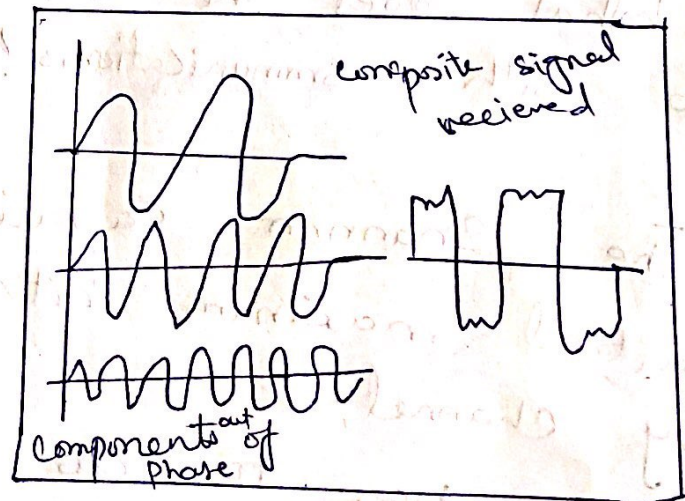 composite signal
recieved
components out of
phase